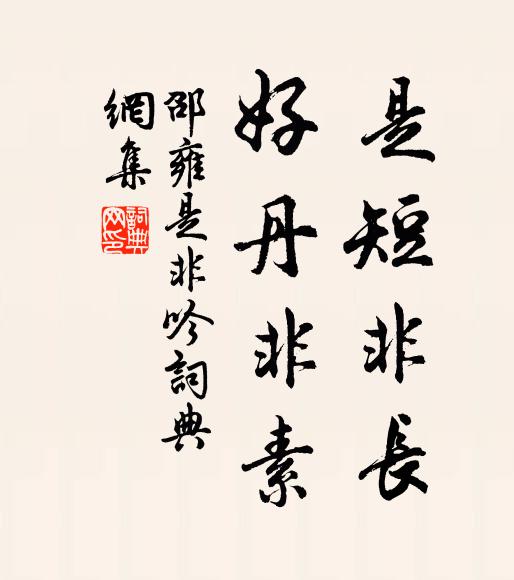 是短非長
好丹非素
邵雍是非吟詞典
網集
詞典網印